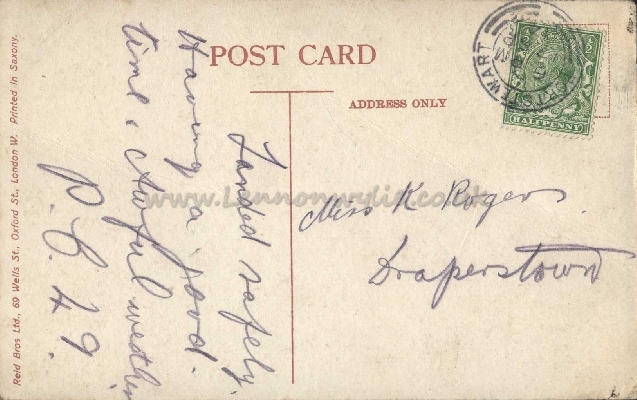 POST CARD
ADDRESS ONLY
HALFPENNY
Landed safely.
Having a good
time. Awful weather
P.C. 49.
Miss K Rogers.
Draperstown
Reid Bros Ltd., 69 Wells St., Oxford St., London W. Printed in Saxony.
www.Lennonwylie.co.uk